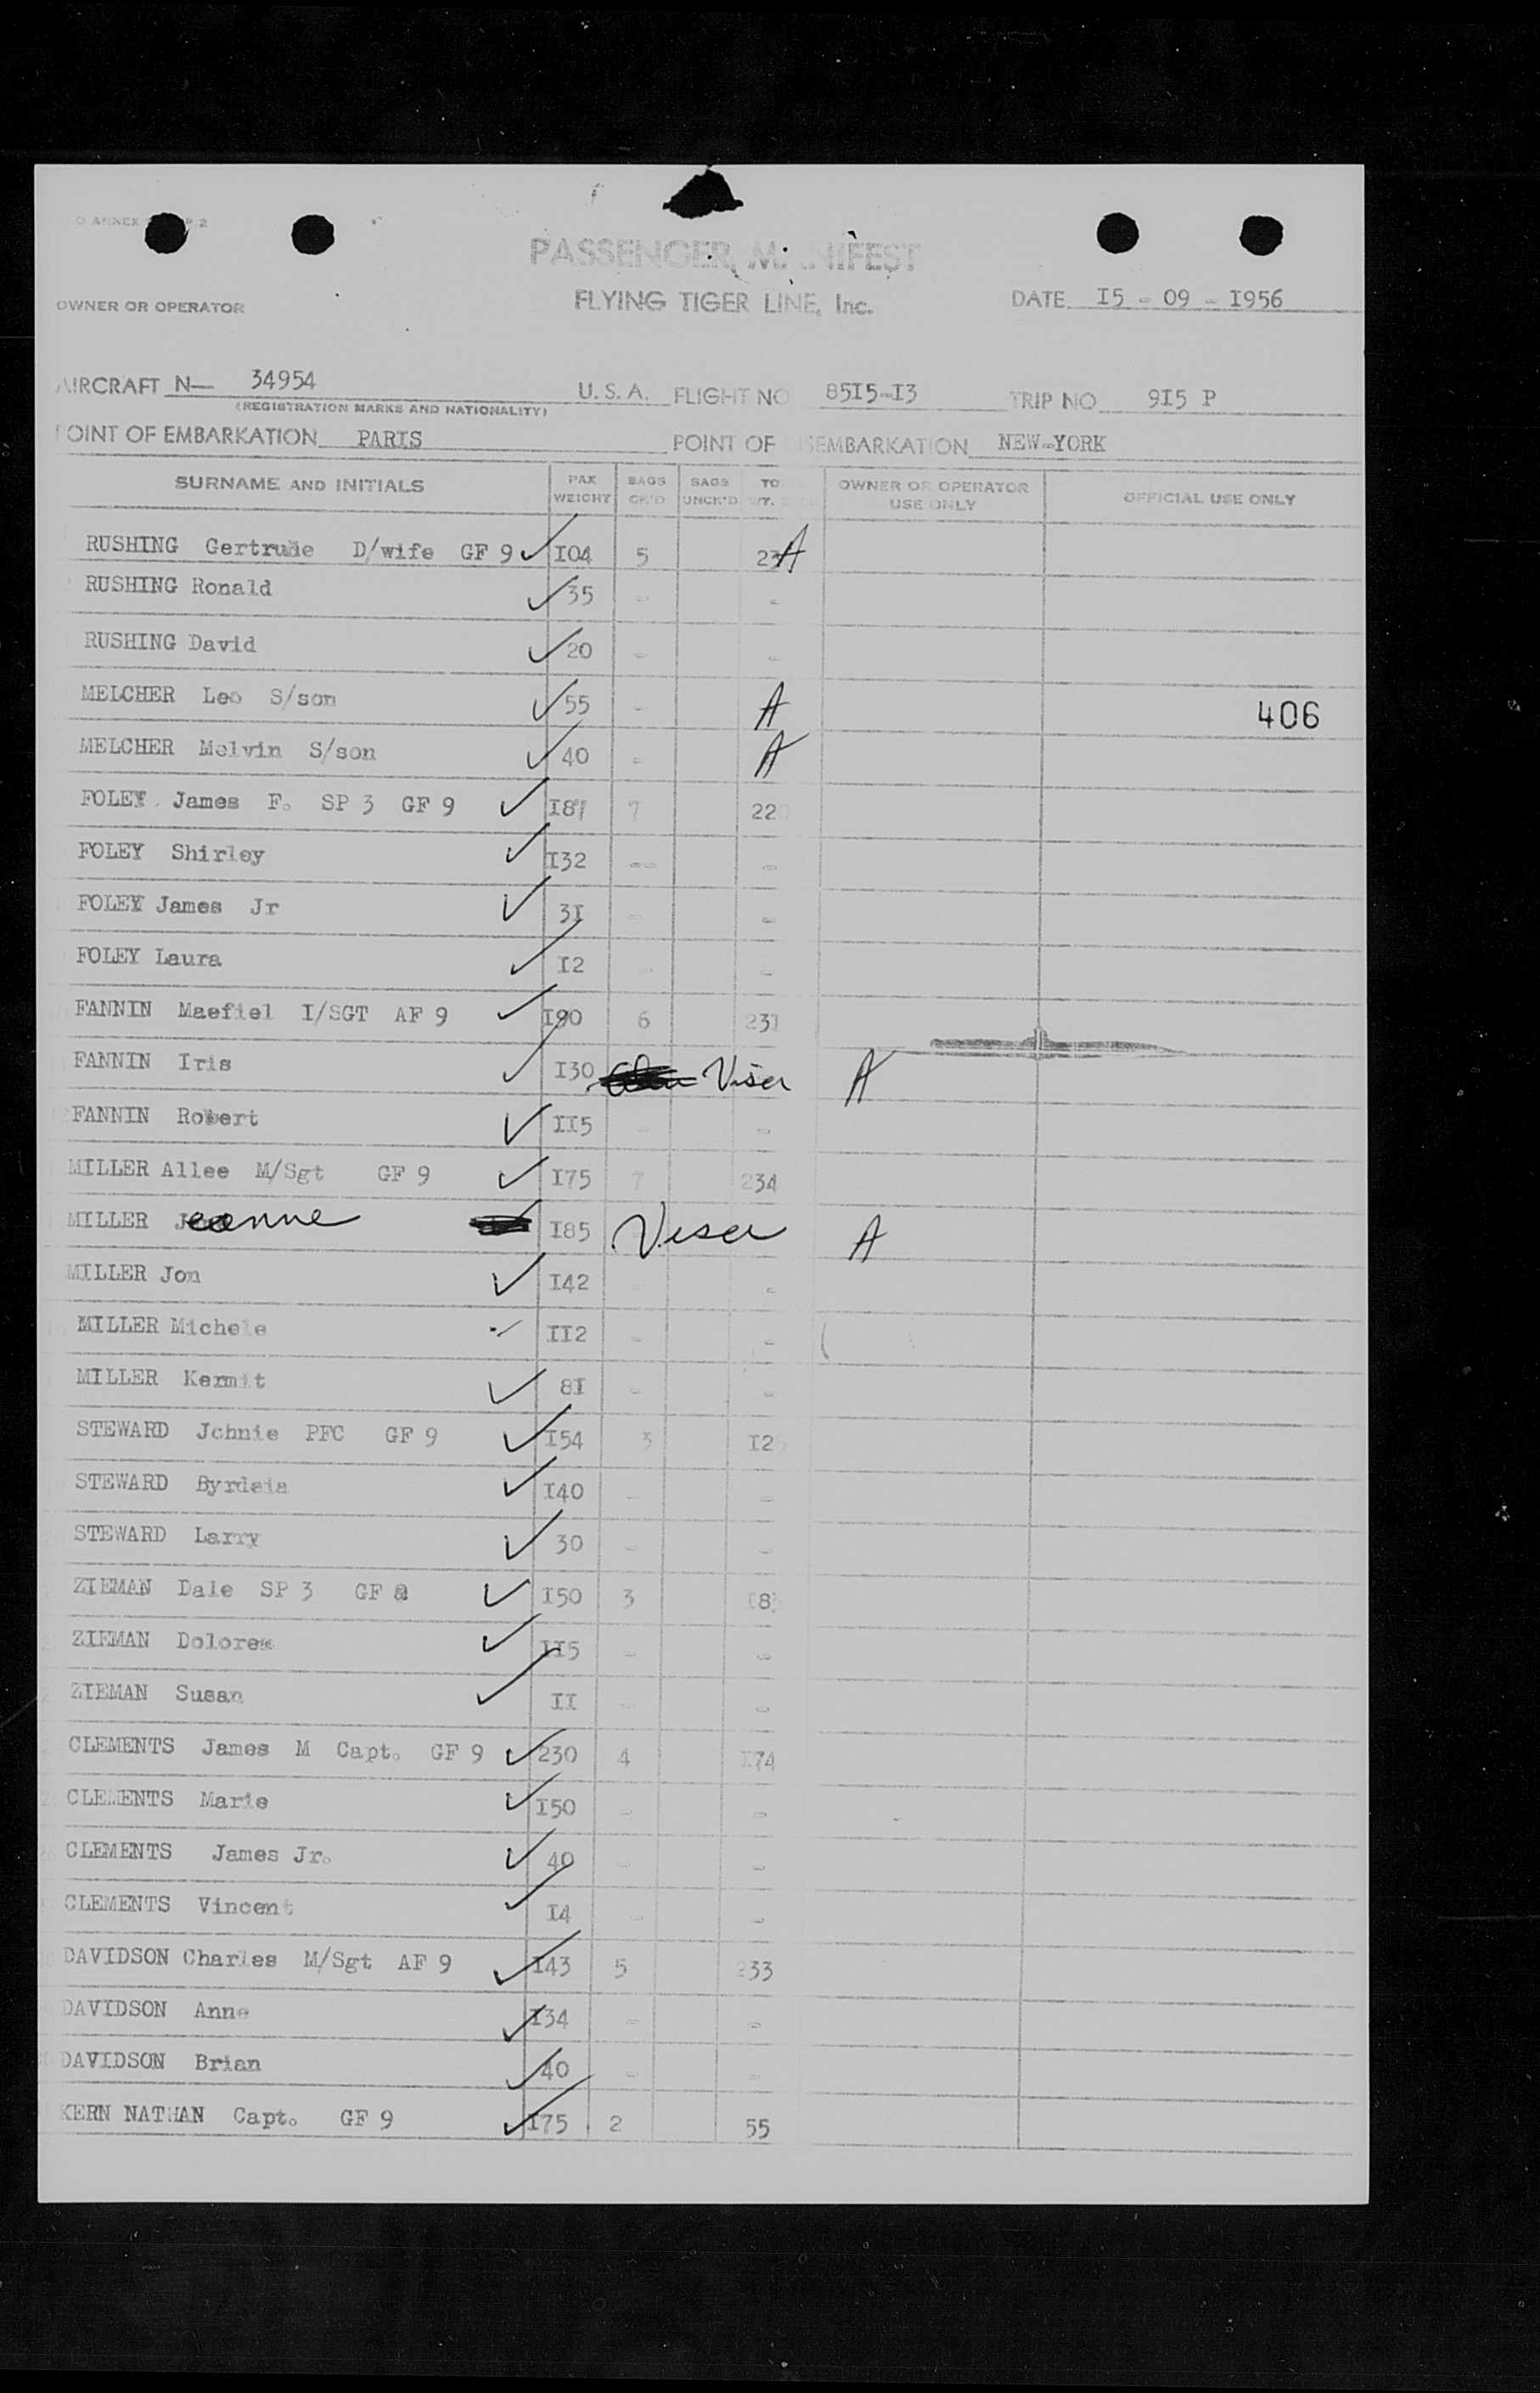 PASSENGER MANIFEST
OWNER OR OPERATOR FLYING TIGER LINE, Inc. DATE I5 - 09 - I956
AIRCRAFT N— 34954 U.S.A. FLIGHT NO 85I5-I3 TRIP NO 9I5 P
(REGISTRATION MARKS AND NATIONALITY)
POINT OF EMBARKATION PARIS POINT OF DISEMBARKATION NEW-YORK
SURNAME AND INITIALS PAX WEIGHT BAGS CK'D BAGS UNCK'D WT. OWNER OR OPERATOR USE ONLY OFFICIAL USE ONLY
RUSHING Gertrude D/wife GF 9 I04 5 A
RUSHING Ronald 35 - -
RUSHING David 20 - -
MELCHER Leo S/son 55 - A 406
MELCHER Melvin S/son 40 - A
FOLEY James F. SP 3 GF 9 7 22
FOLEY Shirley I32 -- -
FOLEY James Jr 3I - -
FOLEY Laura I2 - -
FANNIN Maefiel I/SGT AF 9 I90 6 231
FANNIN Iris I30 Viser A
FANNIN Robert II5 - -
MILLER Allee M/Sgt GF 9 I75 7 234
MILLER Jeanne I85 Viser A
MILLER Jon I42 - -
MILLER Michele II2 - -
MILLER Kermit 8I - -
STEWARD Johnie PFC GF 9 I54 3 I2
STEWARD I40 - -
STEWARD Larry 30 - -
ZIEMAN Dale SP 3 GF I50 3
ZIEMAN Dolores II5 - -
ZIEMAN Susan II - -
CLEMENTS James M Capt. GF 9 230 4 I74
CLEMENTS Marie I50 - -
CLEMENTS James Jr. 40 - -
CLEMENTS Vincent I4 - -
DAVIDSON Charles M/Sgt AF 9 I43 5 233
DAVIDSON Anne I34 - -
DAVIDSON Brian 40 - -
KERN NATHAN Capt. GF 9 I75 2 55